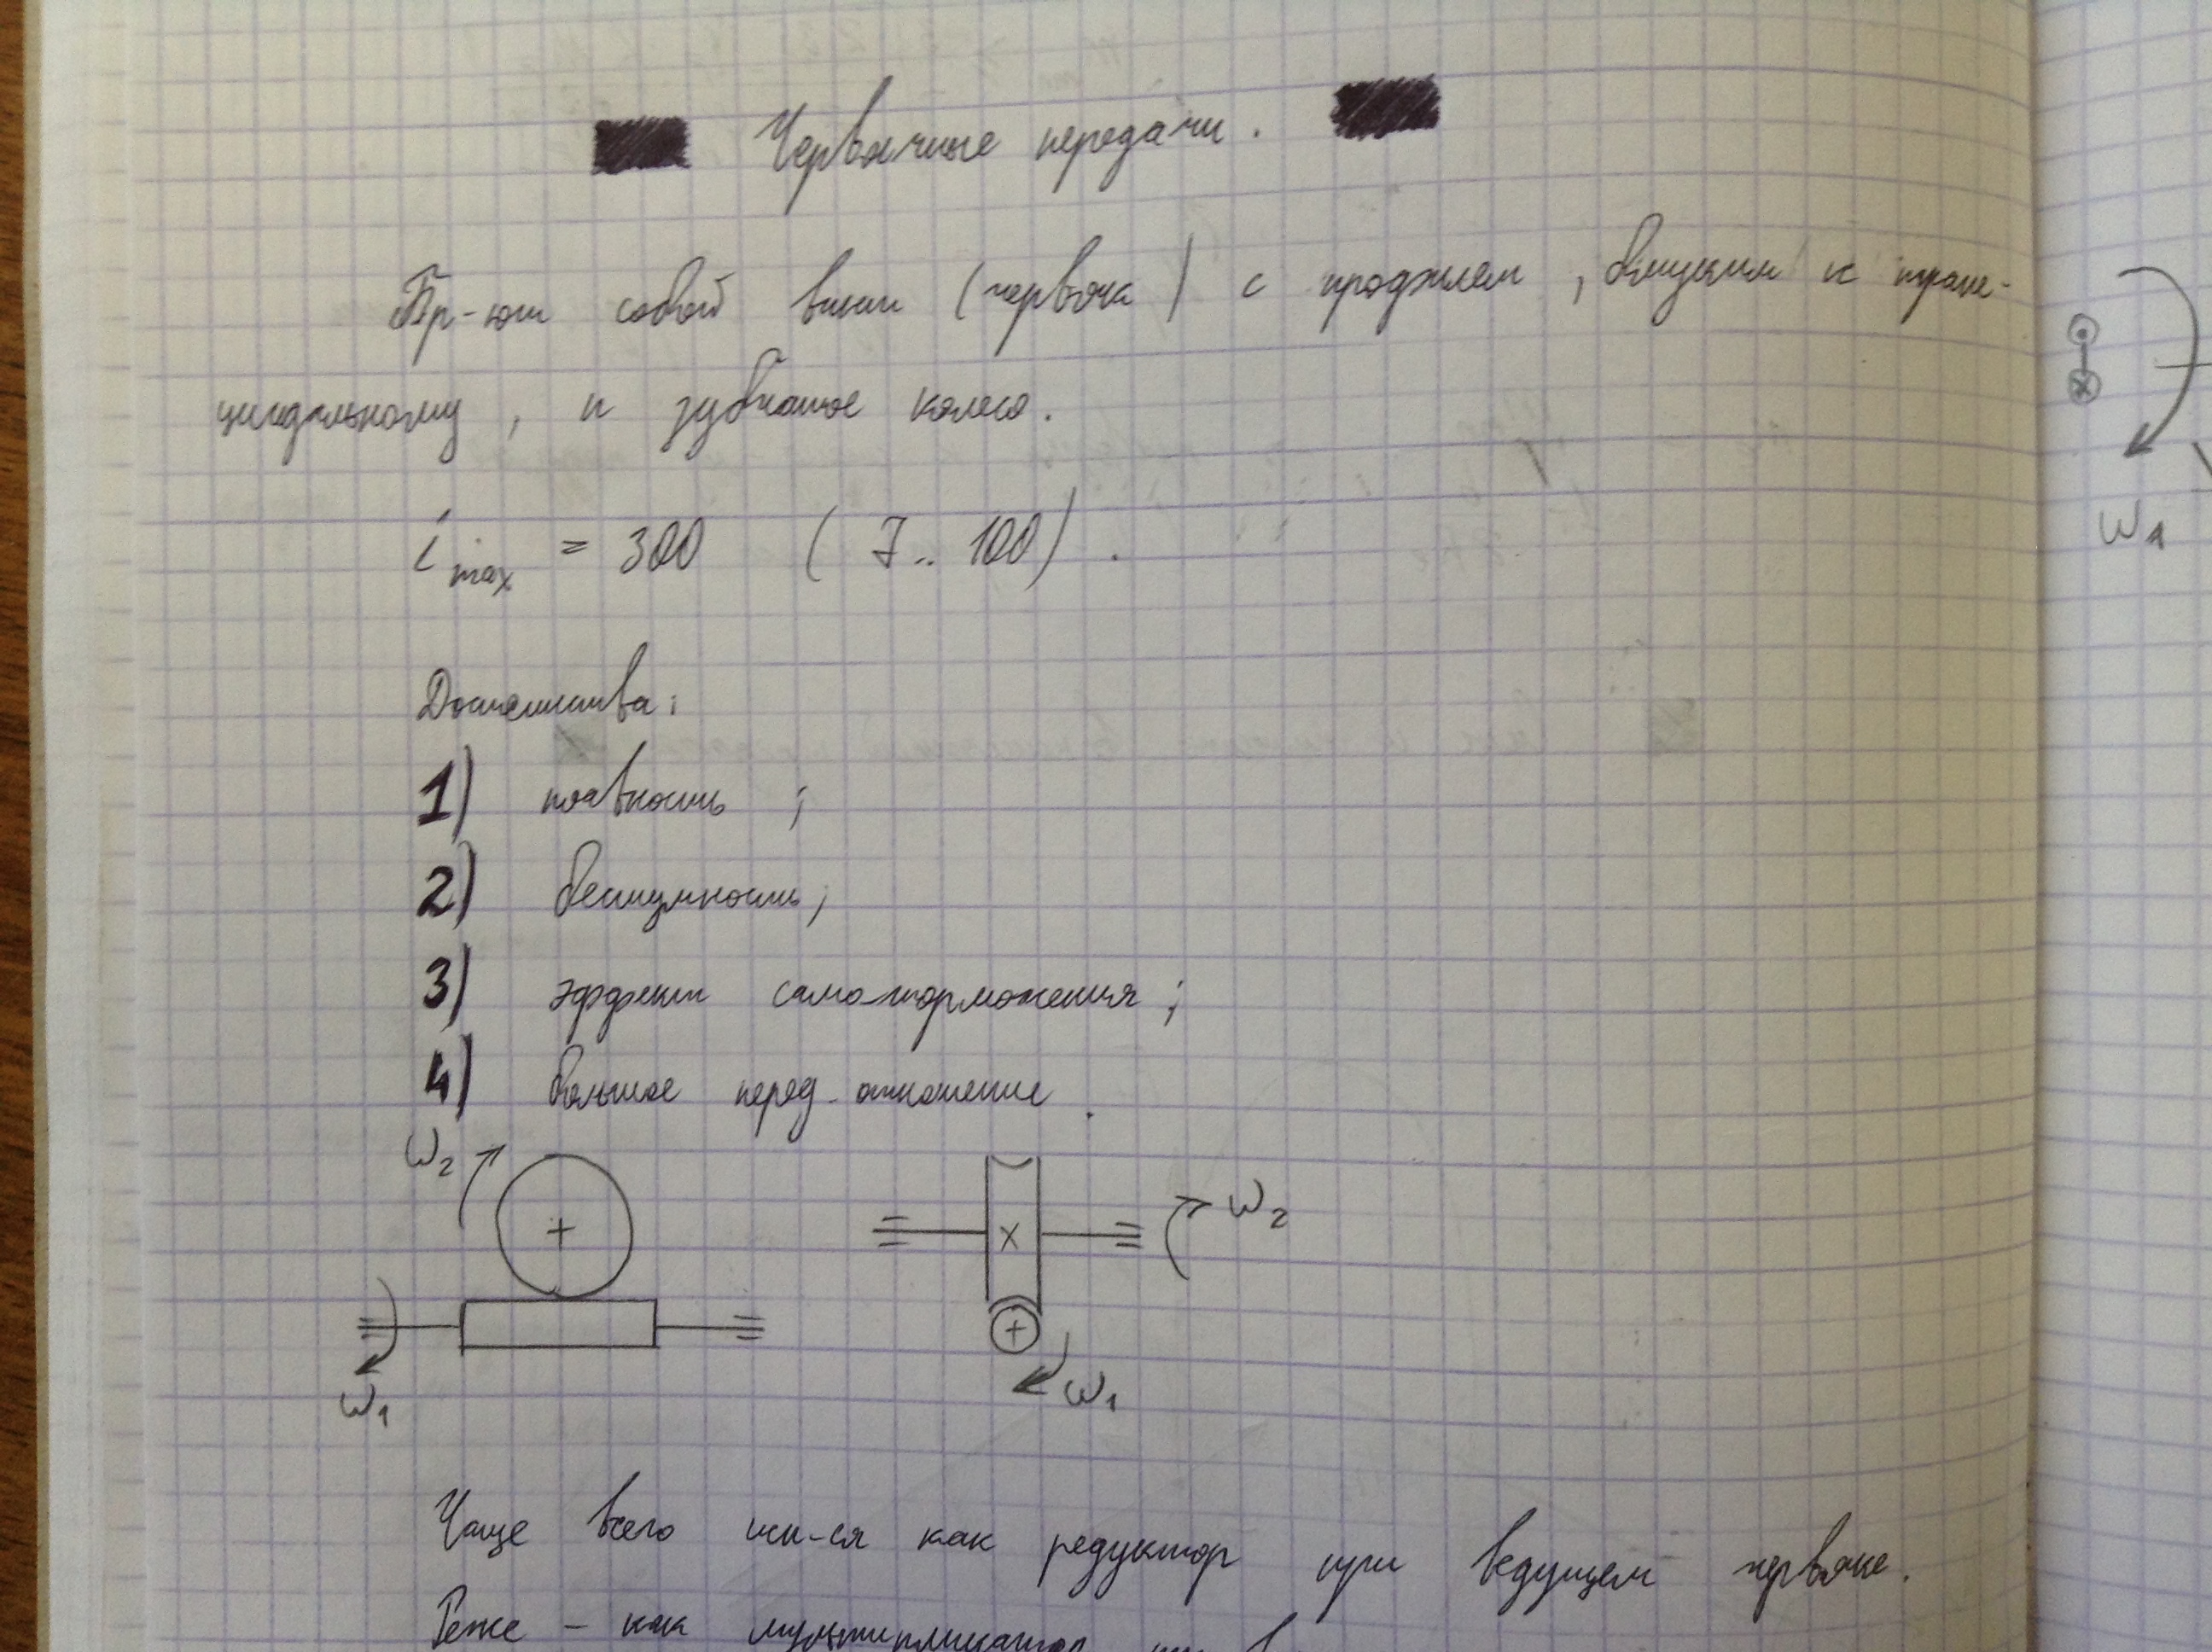 Червячные передачи.
Пр-ют собой винт (червяк) с профилем, близким к трапе-
цеидальному, и зубчатое колесо.
i max = 300 (7.. 100).
Достоинства:
1) плавность;
2) бесшумность;
3) эффект самоторможения;
4) большое перед. отношение.
ω2
ω2
ω1
ω1
Чаще всего исп-ся как редуктор при ведущем червяке.
Реже - как мультипликатор
ω1